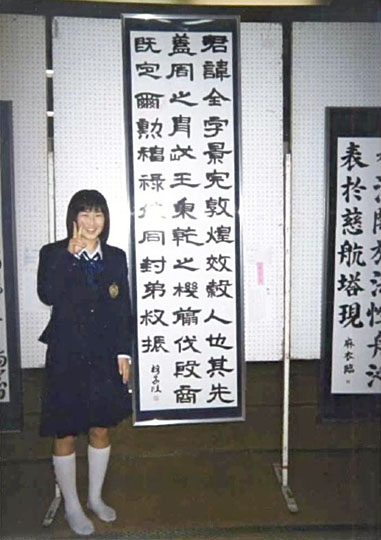 君諱全字景完敦煌效穀人也其先
蓋周之胄武王秉乾之機翦伐殷商
既定爾勲福祿攸同封弟叔振
表於慈航塔現
臨